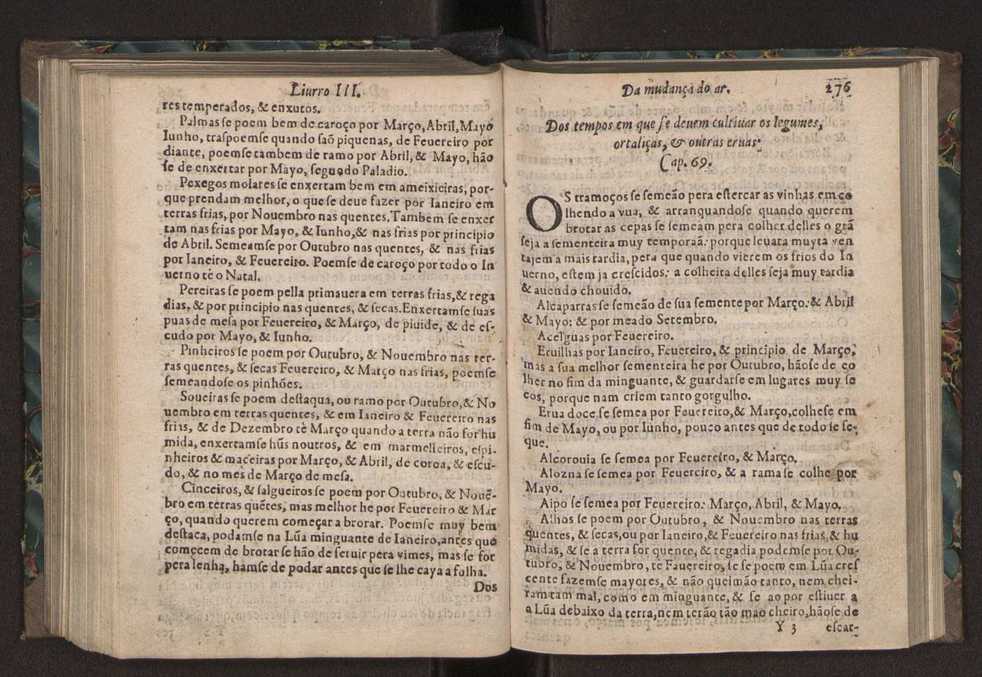 Liurro III.
res temperados, & enxutos.
Palmas se poem bem de caroço por Março, Abril, Mayo
Iunho, traspoemse quando saõ piquenas, de Feuereiro por
diante, poemse tambem de ramo por Abril, & Mayo, hão
se de enxertar por Mayo, segundo Paladio.
Pexegos molares se enxertam bem em ameixieiras, por-
que prendam melhor, o que se deue fazer por Ianeiro em
terras frias, por Nouembro nas quentes. Tambem se enxer
tam nas frias por Mayo, & Iunho, & nas frias por principio
de Abril. Semeamse por Outubro nas quentes, & nas frias
por Ianeiro, & Feuereiro. Poemse de caroço por todo o In
uerno tè o Natal.
Pereiras se poem pella primauera em terras frias, & rega
dias, & por principio nas quentes, & secas. Enxertamse suas
puas de mesa por Feuereiro, & Março, de piuide, & de es-
cudo por Mayo, & Iunho.
Pinheiros se poem por Outubro, & Nouembro nas ter-
ras quentes, & secas Feuereiro, & Março nas frias, poemse
semeandose os pinhões.
Soueiras se poem destaqua, ou ramo por Outubro, & No
uembro em terras quentes, & em Ianeiro & Feuereiro nas
frias, & de Dezembro tè Março quando a terra não for hu
mida, enxertamse hũs noutros, & em marmelleiros, espi-
nheiros & maceiras por Março, & Abril, de coroa, & escu-
do, & no mes de Março de mesa.
Cinceiros, & salgueiros se poem por Outubro, & Nouẽ-
bro em terras quẽtes, mas melhor he por Feuereiro & Mar
ço, quando querem começar a brorar. Poemse muy bem
destaca, podamse na Lũa minguante de Ianeiro, antes que
comecem de brotar se hão de seruir pera vimes, mas se for
pera lenha, hamse de podar antes que se lhe caya a folha.
Dos
Da mudança do ar. 276
Dos tempos em que se deuem cultiuar os legumes,
ortaliças, & outras eruas.
Cap. 69.
OS tramoços se semeão pera estercar as vinhas em co
lhendo a vua, & arranquandose quando querem
brotar as cepas se semeam pera colher delles o grã
seja a sementeira muy temporaã: porque leuara muyta ven
tajem a mais tardia, pera que quando vierem os frios do In
uerno, estem ja crescidos: a colheita delles seja muy tardia
& auendo chouido.
Alcaparras se semeão de sua semente por Março: & Abril
& Mayo: & por meado Setembro.
Acelguas por Feuereiro.
Eruilhas por Ianeiro, Feuereiro, & principio de Março,
mas a sua melhor sementeira he por Outubro, hãose de co
lher no fim da minguante, & guardarse em lugares muy se
cos, porque nam criem tanto gorgulho.
Erua doce se semea por Feuereiro, & Março, colhese em
fim de Mayo, ou por Iunho, pouco antes que de todo se se-
que.
Alcorouia se semea por Feuereiro, & Março.
Alozna se semea por Feuereiro, & a rama se colhe por
Mayo.
Aipo se semea por Feuereiro. Março, Abril, & Mayo.
Alhos se poem por Outubro, & Nouembro nas terras
quentes, & secas, ou por Ianeiro, & Feuereiro nas frias, & hu
midas, & se a terra for quente, & regadia podemse por Ou-
tubro, & Nouembro, te Feuereiro, se se poem em Lũa cres
cente fazemse mayores, & não queimão tanto, nem chei-
ram tam mal, como em minguante, & se ao por estiuer a
a Lũa debaixo da terra, nem terão tão mao cheiro, hãose de
Y 3 escar-